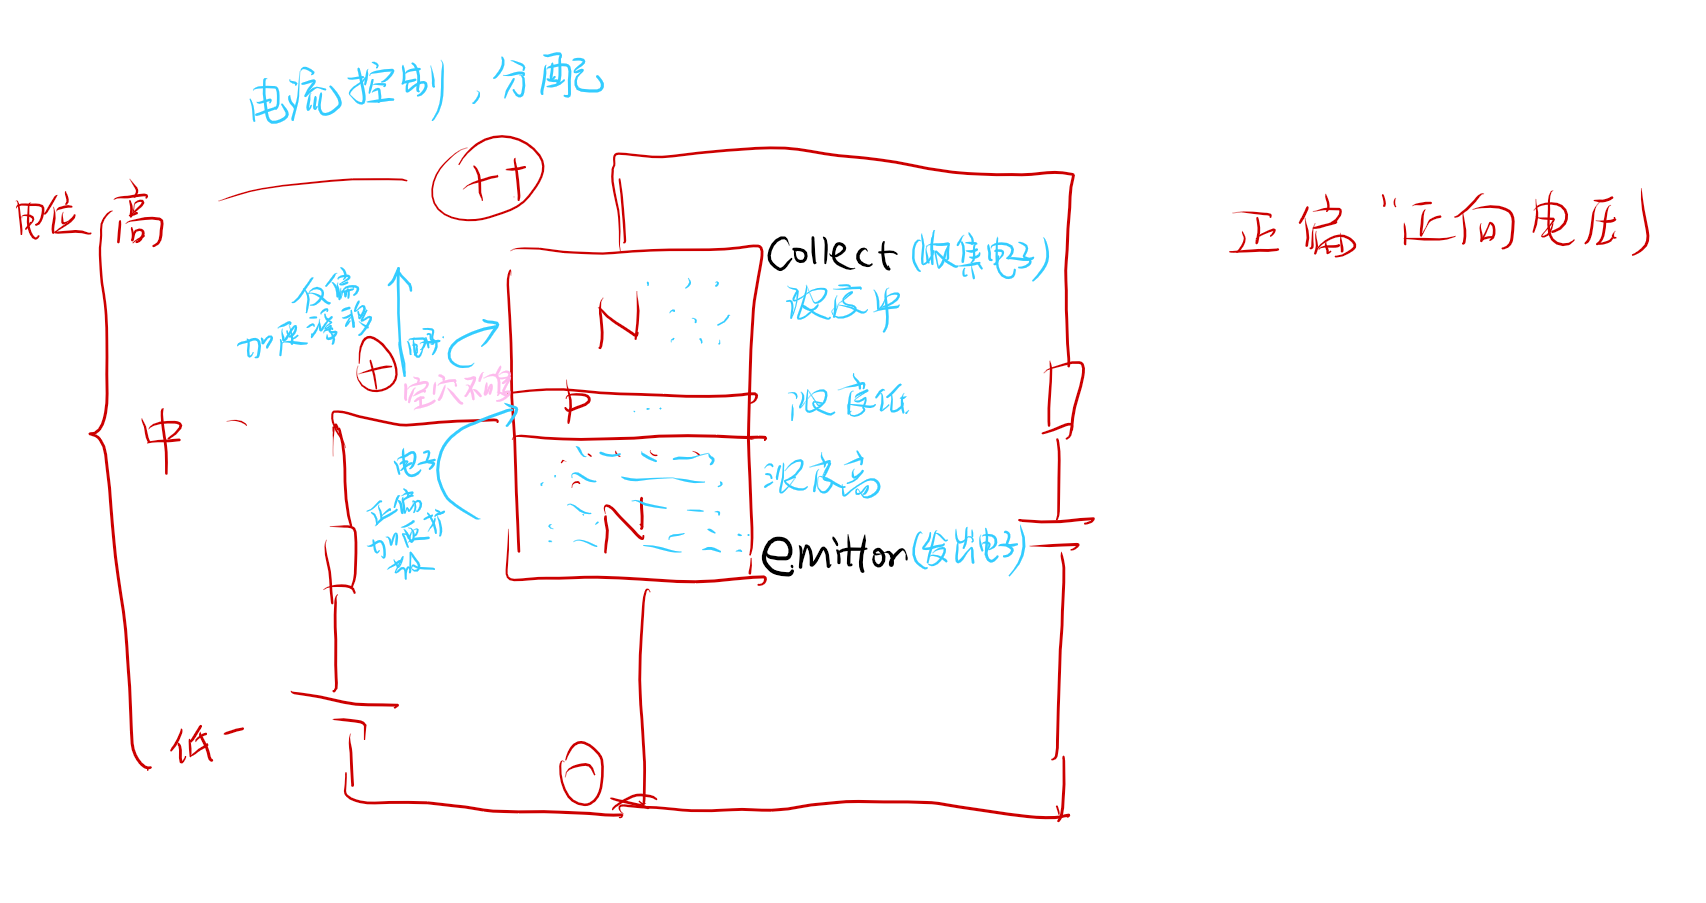 电流控制，分配
++
电位
高
正偏“正向电压）
Collect (收集电子)
浓度中
N
反偏
加速漂移
电子
+
空穴不够
P
浓度低
中 -
电子
正偏
加速扩
散
浓度高
N
emitton (发出电子)
低 -
-